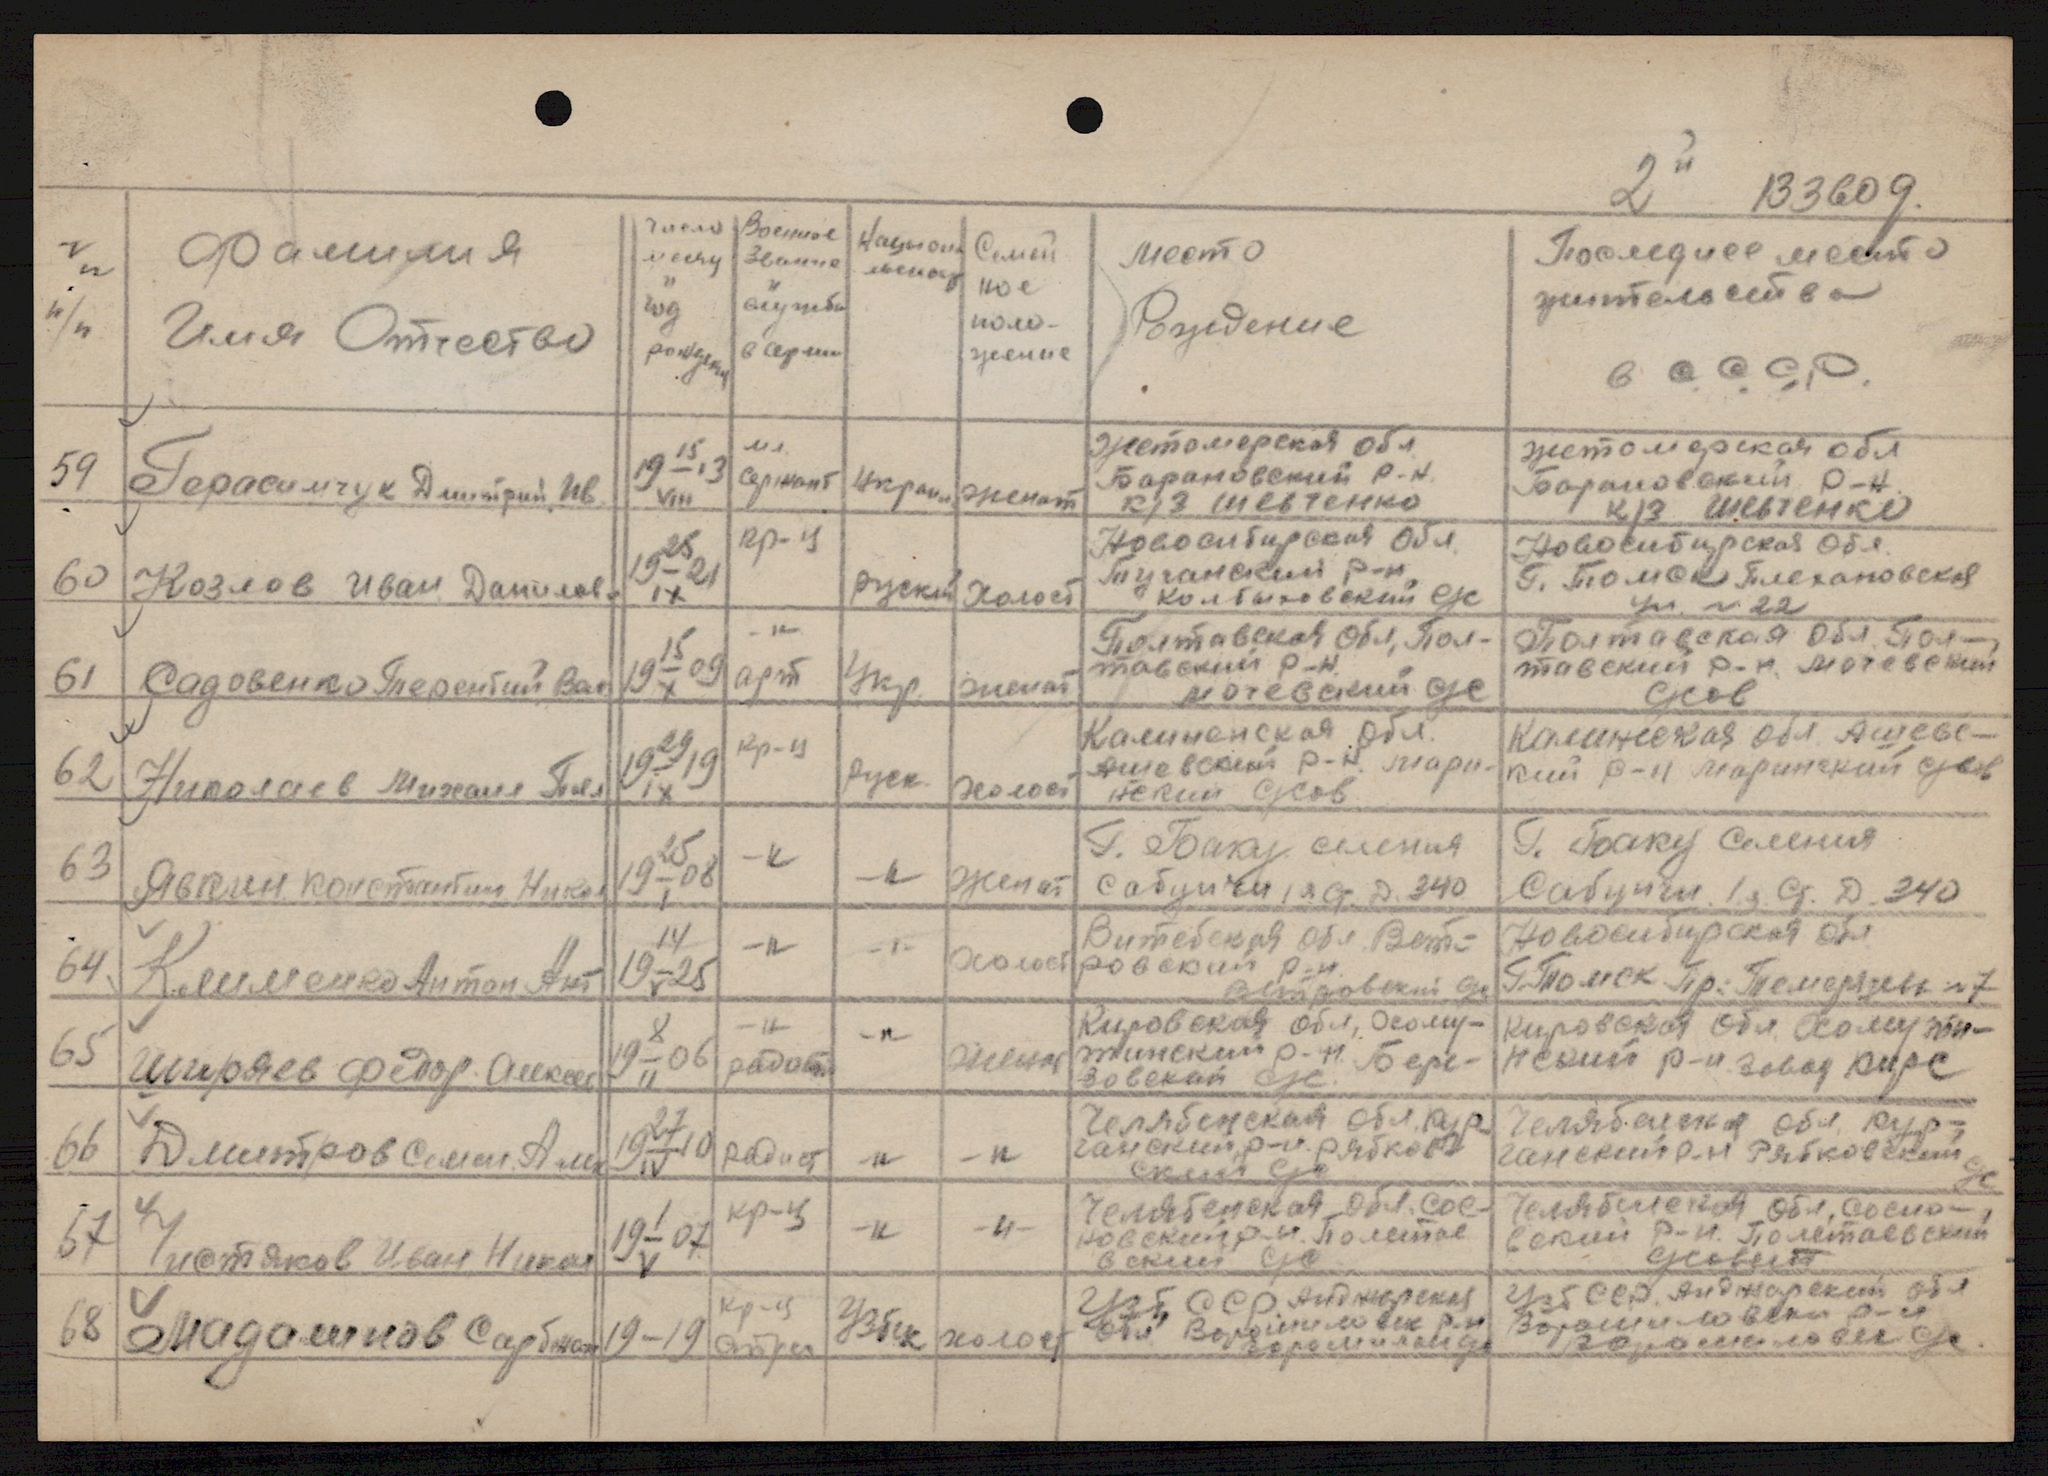 2й взвод.
№ п/п
Фамилия
Имя Отчество
число месяц " год рождения
Военное звание " служба в армии
Национальность
Семейное положение
место
Рождение
Последнее место
жительства
в С.С.С.Р.
59 Герасимчук Дмитрий Ив. 19 15/VIII 13 мл. сержант Украин женат
Жетомерская обл
Барановский р-н.
к/з Шевченко
жетомерская обл
Барановский р-н.
к/з Шевченко
60 Козлов Иван Данилов. 19 25/IX 21 кр-ц руский холост
Новосибирская обл.
Туганский р-н
колбиховский с/с
Новосибирская обл.
Г. Томск Плехановская
ул. № 22
61 Садовенко Терентий Вас 19 15/X 09 -"- арт Укр. женат
Полтавская обл, Пол-
тавский р-н.
мочевский с/с
Полтавская обл Пол-
тавский р-н. мочевский
с/сов
62 Николаев Михаил Пав 19 29/IX 19 кр-ц руск. холост
Калиненская обл.
Ашевский р-н. Мари-
нский с/сов
Калинская обл Ашевс-
кий р-н Маринский с/сов
63 Явкин Константин Никол 19 25/I 08 -"- -"- женат
Г. Баку селения
Сабунчи 1я ст. Д. 340
Г. Баку Селения
Сабунчи. 1я. Ст. Д. 340
64 Клименко Антон Ант 19 14/V 25 -"- -"- холост
Витебская обл. Вет-
ровский р-н.
Ветровский с/с
Новосибирская обл
Г. Томск Пр: Темерязевь № 7
65 Ширяев Фёдор Алексее 19 8/II 06 -"- радист -"- женат
Кировская обл, Хому-
тинский р-н. Бере-
зовский с/с.
Кировская обл Хомути-
нский р-н. завод Кирс
66 Дмитров Семен Алек 19 27/IV 10 радист -"- -"-
Челябенская обл. кур-
ганский р-н. рябков
ский с/с
Челябенска обл. кур-
ганский р-н Рябковский
с/с
67 Чистяков Иван Никол 19 1/V 07. кр-ц -"- -"-
Челябенская обл. сос-
новский р-н. Полетае
вский с/с
Челябенская обл. Сосно-
вский р-н. Полетаевский
с/совет
68 Мадаминов Сарбжан 19-19 кр-ц Узбек холост
Узб ССР Анджарская
обл Ворошиловск р-н
Узб ССР. Анджарский обл
Ворошиловски р-н
Ворошиловск с/с.